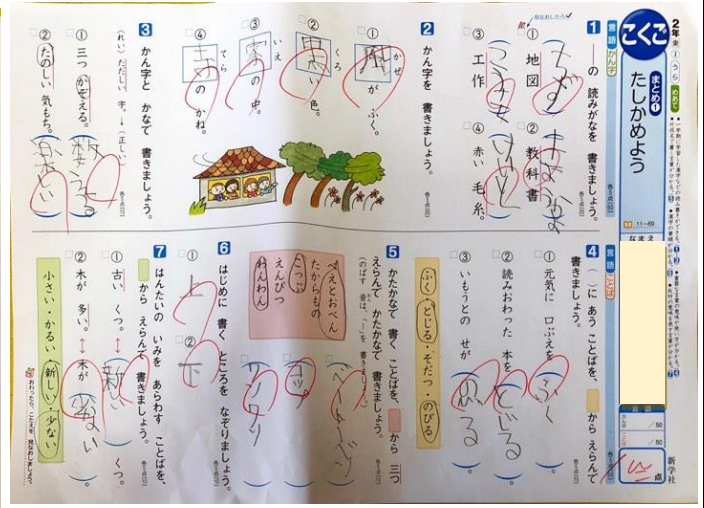 2年
こくご
めあて
まとめ①
たしかめよう
11〜69
言語
かん字
1 ―の 読みがなを 書きましょう。
① 地図
ちず
② 教科書
③ 工作
④ 赤い 毛糸。
けいと
2 かん字を 書きましょう。
① かぜ
風が ふく。
② くろ
黒い 色。
③ いえ
家の 中。
④ てら
寺の かね。
3 かん字と かなで 書きましょう。
(れい) ただしい 字。→(正しい)
① 三つ かぞえる。
数える
② たのしい 気もち。
楽しい
4 言語
ことば
( )に あう ことばを、 から えらんで 書きましょう。
① 元気に 口ぶえを ふく。
② 読みおわった 本を とじる。
③ いもうとの せが のびる。
ふく・とじる・そだつ・のびる
5 かたかなで 書く ことばを、 から 三つ
えらんで かたかなで 書きましょう。
(のばす 音は、「ー」を 書きましょう。)
べえとおべん
たからもの
こっぷ
えんぴつ
わんわん
ベートーベン
コップ
ワンワン
6 はじめに 書く ところを なぞりましょう。
① 上
② 下
7 はんたいの いみを あらわす ことばを、
から えらんで 書きましょう。
① 古い くつ。↔新しい くつ。
② 木が 多い。↔木が 少ない。
小さい・かるい・新しい・少ない
おわったら、こたえを 見なおしましょう。
/50
/50
点
新学社